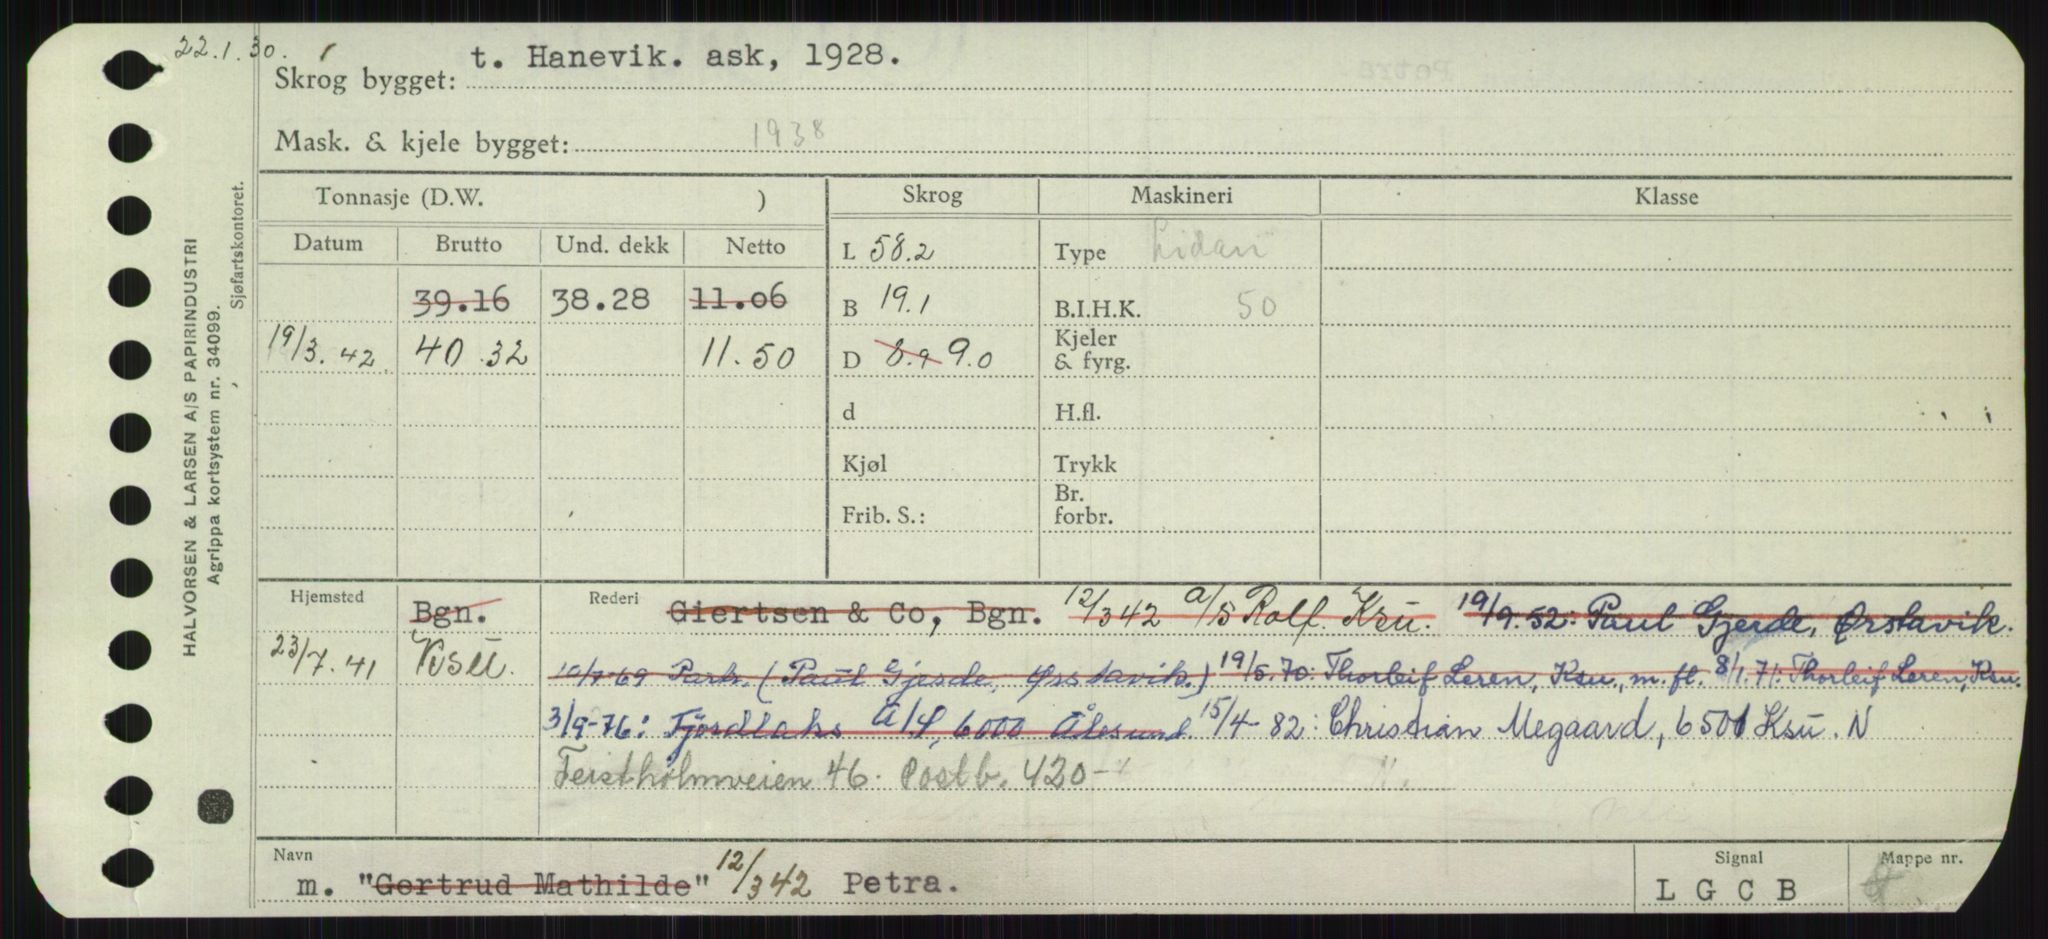 22.1.30.
Skrog bygget: t. Hanevik. ask, 1928.
Mask. & kjele bygget: 1938
Tonnasje (D.W. ) Skrog Maskineri Klasse
Datum Brutto Und. dekk Netto L 58.2 Type Lidan
39.16 38.28 11.06 B 19.1 B.I.H.K. 50
19/3.42 40.32 11.50 D 8.9 9.0 Kjeler & fyrg.
d H.fl.
Kjøl Trykk
Frib. S.: Br. forbr.
Hjemsted Bgn. Rederi Giertsen & Co, Bgn. 12/342 A/S Rolf. Ksu. 19/9.52: Paul Gjerde, Ørstavik.
23/7.41 Ksu. Partr. (Paul Gjerde, Ørstavik.) 19/5.70: Thorleif Leren, Ksu., m.fl. 8/1.71: Thorleif Leren, Ksu.
3/9-76: Fjordlaks A/S, 6000 Ålesund. 15/4-82: Christian Megaard, 6501 Ksu. N
Feistholmveien 46. Postb. 420-
Navn Signal Mappe nr.
m. "Gertrud Mathilde" 12/342 Petra. L G C B
HALVORSEN & LARSEN A/S PAPIRINDUSTRI
Agrippa kortsystem nr. 34099.
Sjøfartskontoret.